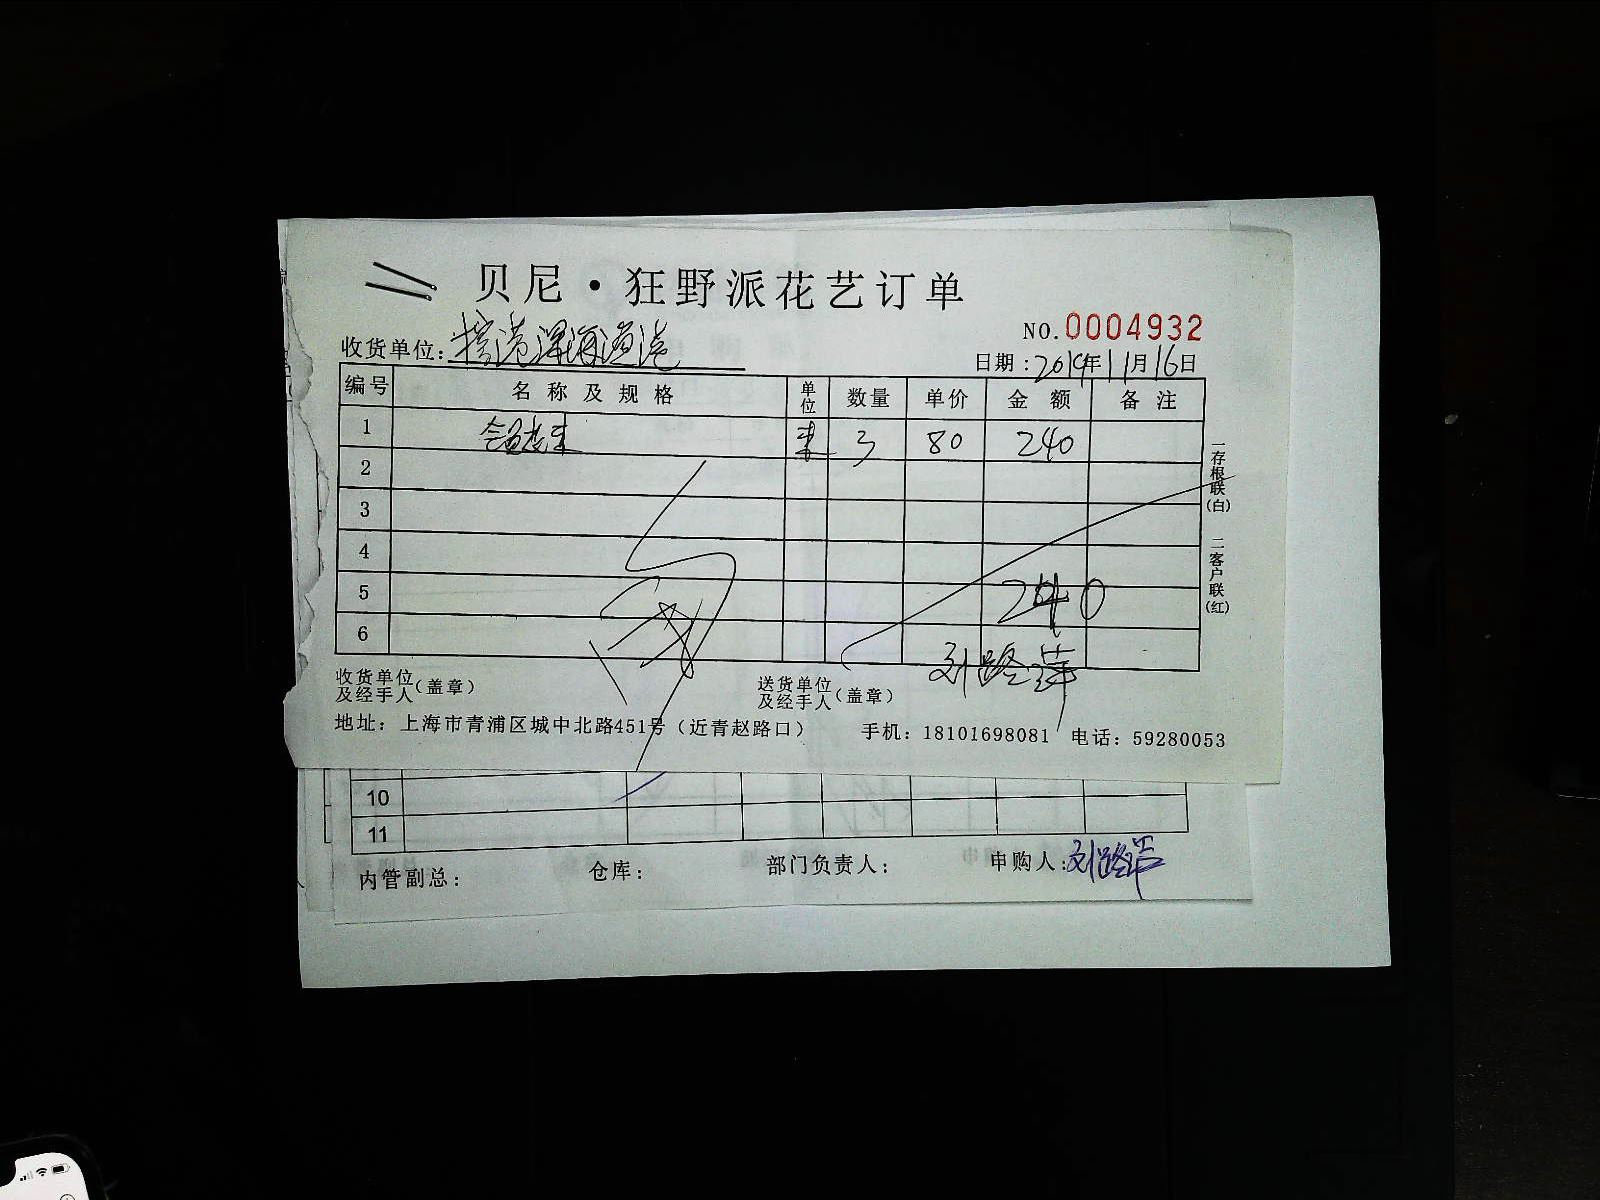 贝尼·狂野派花艺订单
NO.0004932
收货单位:
日期:2019年11月16日
编号 名称及规格 单位 数量 单价 金额 备注
1 束 3 80 240
2
3
4
5 240
6
一存根联(白) 二客户联(红)
收货单位及经手人(盖章)
送货单位及经手人(盖章) 刘路萍
地址:上海市青浦区城中北路451号(近青赵路口) 手机:18101698081 电话:59280053
10
11
内管副总: 仓库: 部门负责人: 申购人:刘路萍